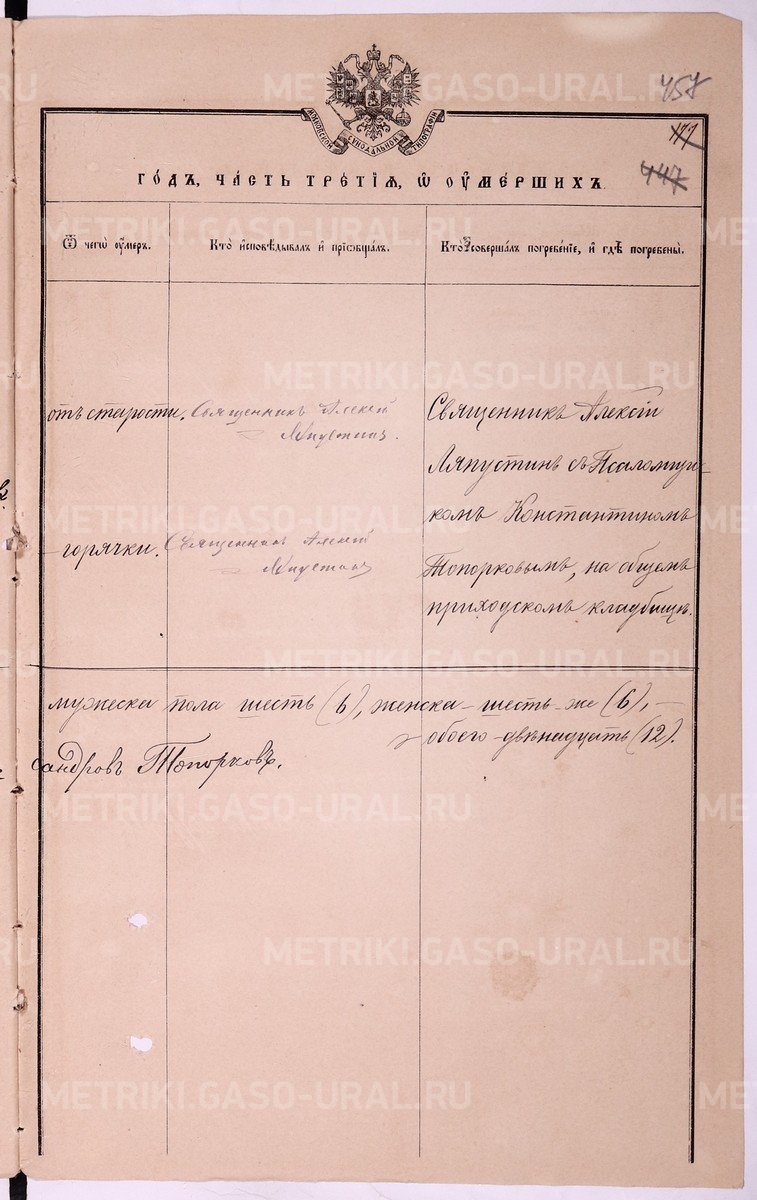 457
177
447
МОСКОВСКОЙ СѴНОДАЛЬНОЙ ТИПОГРАФІИ
ГОДЪ, ЧАСТЬ ТРЕТІЯ, Ѿ ОУМЕРШИХЪ.
Ѿ чегѡ оумеръ.
Кто исповѣдывалъ и пріобщалъ.
Кто совершалъ погребеніе, и гдѣ погребены.
отъ старости.
Священникъ Алексій
Ляпустинъ.
Священникъ Алексій
Ляпустинъ съ Псаломщи-
комъ Константиномъ
Топорковымъ, на общемъ
приходскомъ кладбищѣ.
– горячки.
Священникъ Алексій
Ляпустинъ
мужеска пола шесть (6), женска – шесть же (6), –
обоего двѣнадцать (12).
сандровъ Топорковъ.
METRIKI.GASO-URAL.RU